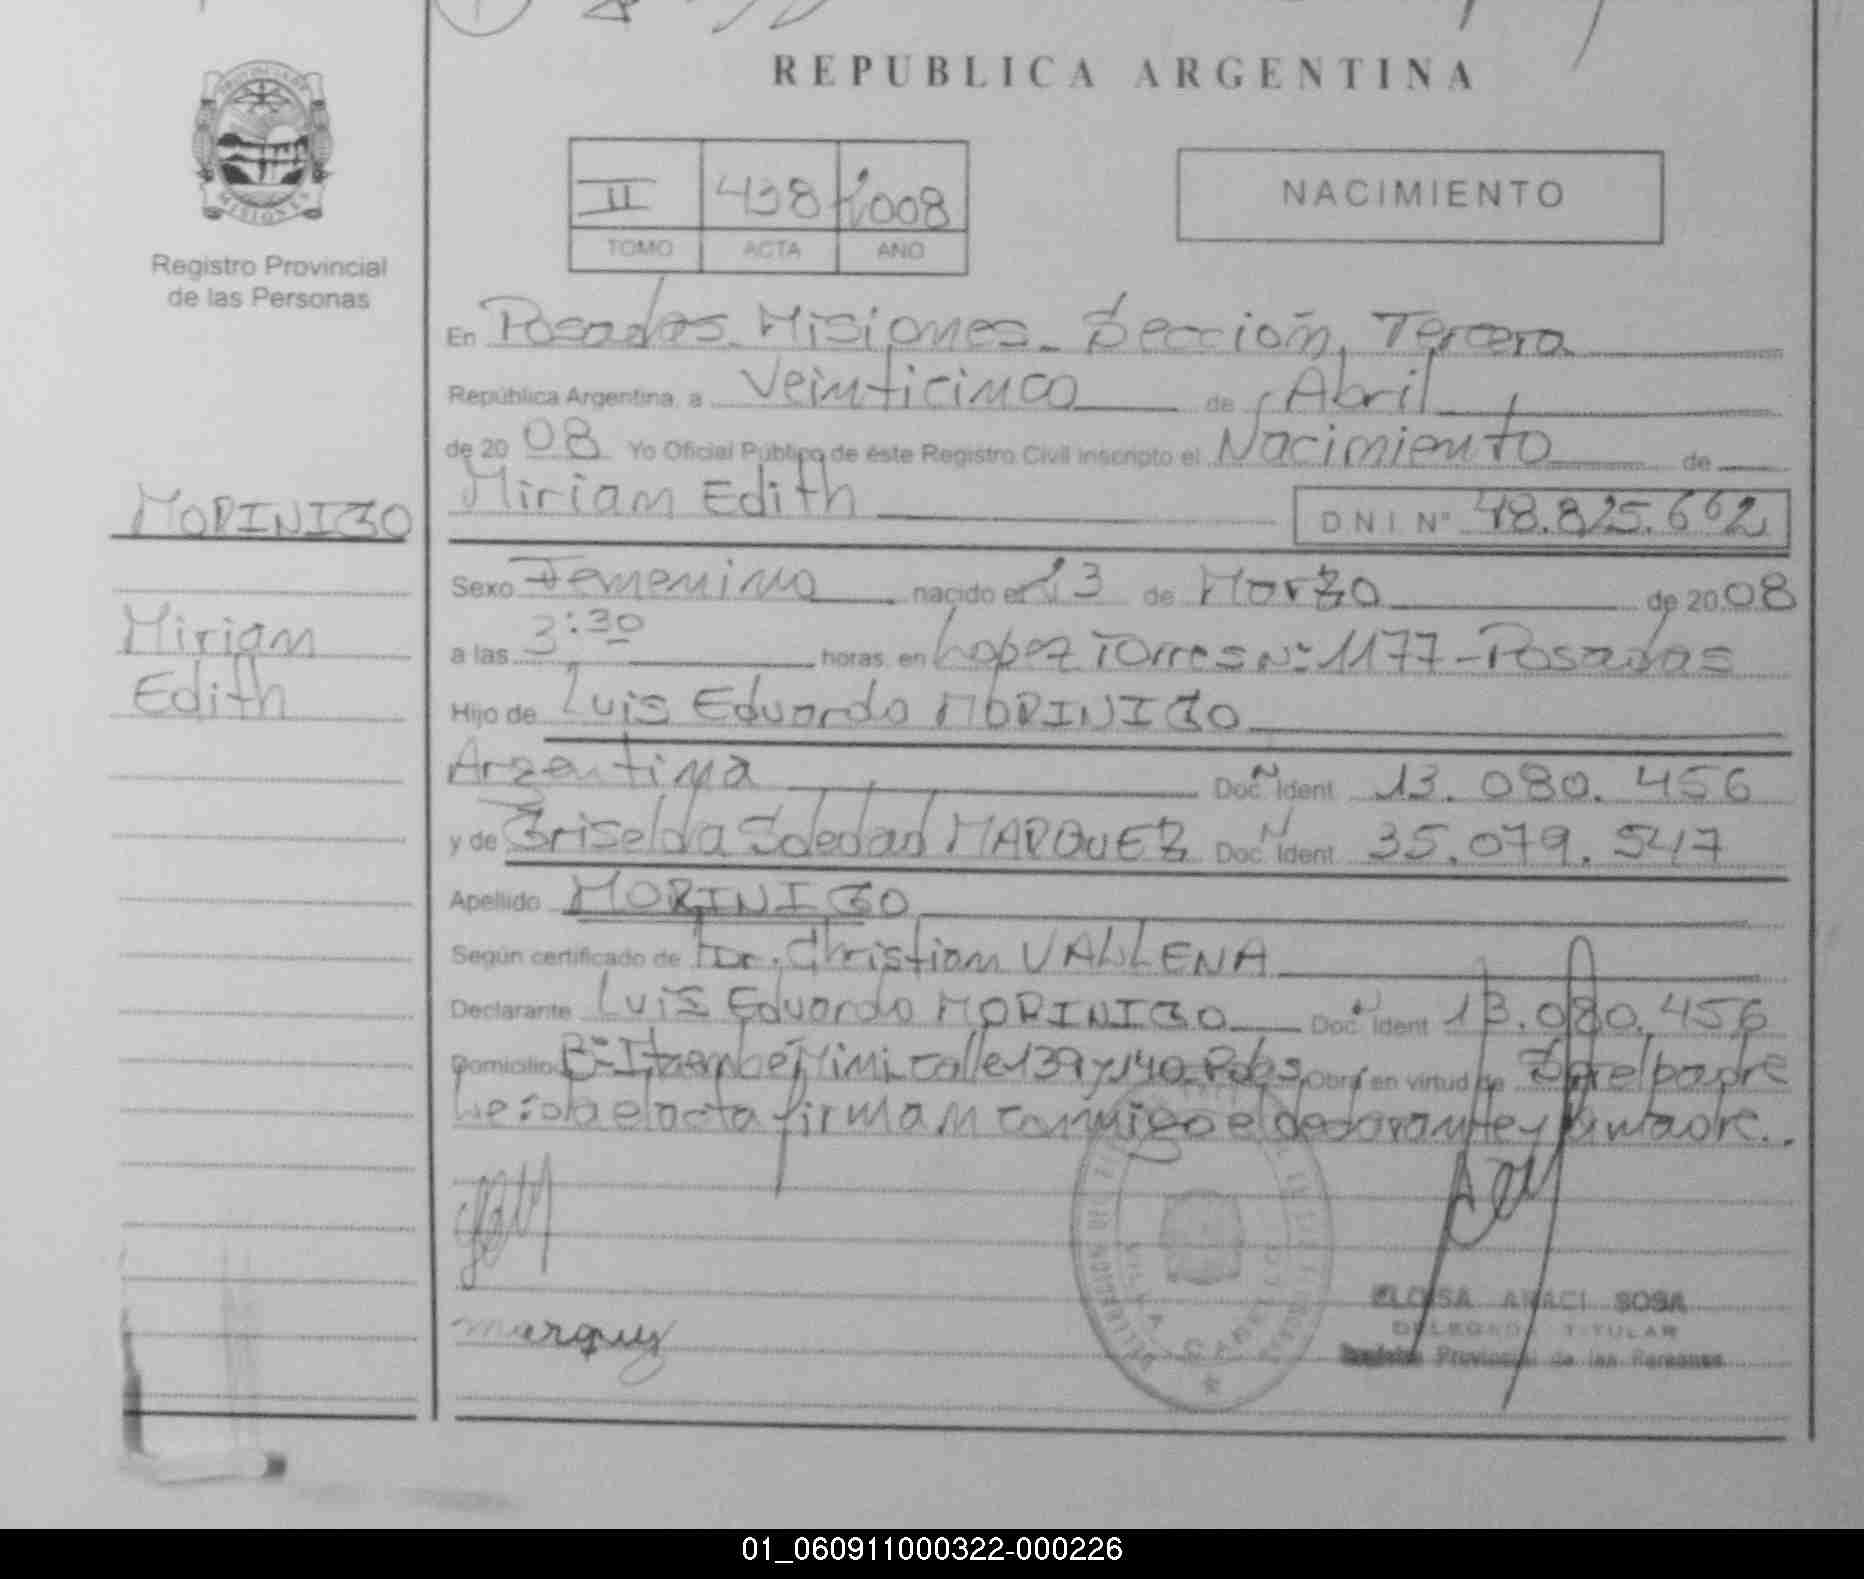 REPUBLICA ARGENTINA
PROVINCIA DE
MISIONES
Registro Provincial
de las Personas
II 438 2008
TOMO ACTA AÑO
NACIMIENTO
En Posadas Misiones - Sección Tercera
República Argentina, a Veinticinco de Abril
de 20 08 Yo Oficial Público de éste Registro Civil inscripto el Nacimiento de
Miriam Edith DNI Nº 48.825.662
MORINIGO
Miriam
Edith
Sexo Femenino nacido el 23 de Marzo de 20 08
a las 3:30 horas, en Lopez Torres Nº 1177 - Posadas
Hijo de Luis Eduardo MORINIGO
Argentina Doc. N Ident 13.080.456
y de Griselda Soledad MARQUEZ Doc. N Ident 35.079.547
Apellido MORINIGO
Según certificado de Dr. Christian VALLENA
Declarante Luis Eduardo MORINIGO Doc. N Ident 13.080.456
Domicilio Bº Itaembé Mini calle 139 y 140 - Pdas Obra en virtud de Ser el padre
Leída el acta firman conmigo el declarante y la madre..
marquez
VILLA CABELLO
ELOISA ARACI SOSA
DELEGADA TITULAR
Registro Provincial de las Personas
01_060911000322-000226